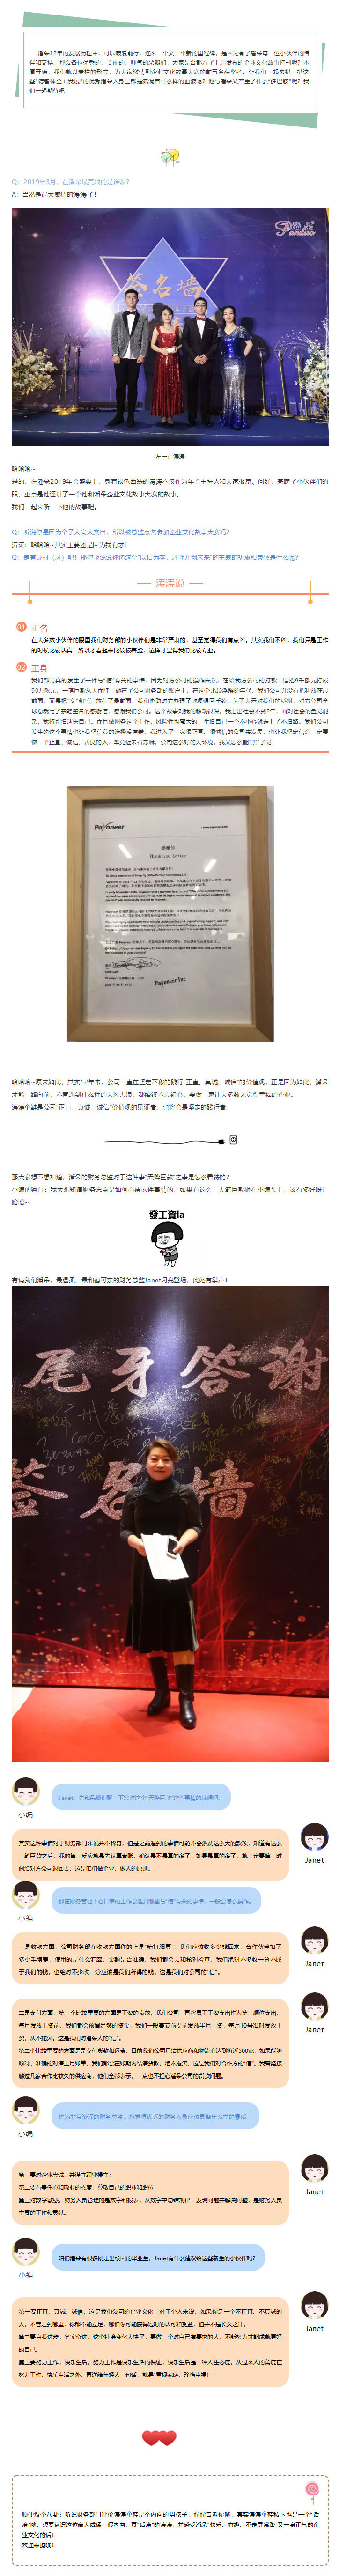 潘朵12年的发展历程中，可以破浪前行，迎来一个又一个新的里程碑，是因为有了潘朵每一位小伙伴的陪
伴和支持。那么各位优秀的、美丽的、帅气的朵颗们，大家是否都看了上周发布的企业文化故事特刊呢？本
周开始，我们就以专栏的形式，为大家邀请到企业文化故事大赛的前五名获奖者。让我们一起来扒一扒这
们一起期待吧！
Q：2019年3月，在潘朵最亮眼的是谁呢？
A：当然是高大威猛的涛涛了！
签名墙
Panduo
左一：涛涛
哈哈哈~
是的，在潘朵2019年会盛典上，身着银色西装的涛涛不仅作为年会主持人和大家招幕、问好，亮瞎了小伙伴们的
眼，重点是他还讲了一个他和潘朵企业文化故事大赛的故事。
我们一起来听一下他的故事吧。
Q：听说你是因为个子太高太突出，所以被总监点名参加企业文化故事大赛吗？
涛涛：哈哈哈~其实主要还是因为我有才！
Q：是有身材（才）吧！那你能说说你选这个“以信为本，才能开创未来”的主题的初衷和灵感是什么呢？
涛涛说
01 正名
在大多数小伙伴的眼里我们财务部的小伙伴们是非常严肃的，甚至觉得我们有点凶。其实我们不凶，我们只是工作
的时候比较认真，所以才看起来比较板着脸，这样才显得我们比较专业。
02 正身
我们部门真的发生了一件与“信”有关的事情，因为对方公司的操作失误，在给我方公司的打款中错把9千欧元打成
90万欧元，一笔巨款从天而降，砸在了公司财务部的账户上，在这个比较浮躁的年代，我们公司并没有把利放在最
前面，而是把“义”和“信”放在了最前面，我们协助对方办理了款项退回手续。为了表示对我们的感谢，对方公司全
球总裁写了亲笔签名的感谢信，感谢我们公司。这个故事对我的触动很深，我走出社会不到2年，面对社会的鱼龙混
杂，我特别怕迷失自己。而且做财务这个工作，风险性也蛮大的，生怕自己一个不小心就走上了不归路。我们公司
发生的这个事情也让我坚信我的选择没有错，我进入了一家很正直、很诚信的公司去发展，也让我坚定信念一定要
做一个正直、诚信、善良的人，毕竟近朱者赤嘛，公司这么好的大环境，我又怎么能“黑”了呢！
Payoneer
www.payoneer.com
感谢信
Thank-you Letter
Payoneer Inc
哈哈哈~原来如此，其实12年来，公司一直在坚定不移的践行“正直、真诚、诚信”的价值观，正是因为如此，潘朵
才能一路向前，不管遇到什么样的大风大浪，都始终不忘初心，要做一家让大多数人觉得幸福的企业。
涛涛童鞋是公司“正直、真诚、诚信”价值观的见证者，也将会是坚定的践行者。
那大家想不想知道，潘朵的财务总监对于这件事“天降巨款”之事是怎么看待的？
小编的独白：我太想知道财务总监是如何看待这件事情的，如果有这么一大笔巨款砸在小编头上，该有多好呀！
哈哈~
發工資la
有请我们潘朵、最温柔、最和蔼可亲的财务总监Janet闪亮登场，此处有掌声！
尾牙答谢
签名墙
Janet，先和朵颗们聊一下您对这个“天降巨款”这件事情的感想吧。
小编
其实这种事情对于财务部门来说并不稀奇，但是之前遇到的事情可能不会涉及这么大的款项，知道有这么
一笔巨款之后，我的第一反应就是先认真查账，确认是不是真的多了，如果是真的多了，就一定要第一时
间给对方公司退回去，这是咱们做企业，做人的原则。
Janet
那在财务管理中心日常的工作会遇到哪些与“信”有关的事情，一般会怎么操作。
小编
一是收款方面，公司财务部在收款方面称的上是“精打细算”，我们应该收多少钱回来，合作伙伴扣了
多少手续费，使用的是什么汇率，金额是否准确，我们都会去和核对检查，我们绝对不多收一分不属
于我们的钱，也绝对不少收一分应该是我们所得的钱。这是我们对公司的“信”。
Janet
二是支付方面，第一个比较重要的方面是工资的发放，我们公司一直将员工工资支出作为第一顺位支出，
每月发放工资前，我们都会预留足够的资金，我们一般春节前提前发放半月工资，每月10号准时发放工
资，从不拖欠。这是我们对潘朵人的“信”。
第二个比较重要的方面是是支付货款和运费，目前我们公司月结供应商和物流商达到将近500家，如果能够
顺利、准确的对清上月账单，我们都会在账期内结清货款，绝不拖欠，这是我们对合作方的“信”。我曾经接
触过几家合作比较久的供应商，他们全都表示，一点也不担心潘朵公司的货款问题。
Janet
作为非常资深的财务总监，您觉得优秀的财务人员应该具备什么样的素质。
小编
第一要对企业忠诚，并遵守职业操守；
第二要有责任心和敬业的态度，尊敬自己的职业和职位；
第三对数字敏感，财务人员管理的是数字和报表，从数字中总结规律，发现问题并解决问题，是财务人员
主要的工作和贡献。
Janet
咱们潘朵有很多刚走出校园的毕业生，Janet有什么建议给这些新生的小伙伴吗？
小编
第一要正直、真诚、诚信，这是我们公司的企业文化，对于个人来说，如果你是一个不正直、不真诚的
人，不管走到哪里，你都不能立足，哪怕你可能获得短时的认可和受益，但并不是长久之计；
第二要自我进步，务实奋进，这个社会变化太快了，要做一个对自己有要求的人，不断努力才能成就更好
的自己。
第三要努力工作，快乐生活，努力工作是快乐生活的保证，快乐生活是一种人生态度，从过来人的角度在
努力工作，快乐生活之外，再送给年轻人一句话，就是“重视家庭，珍惜幸福！”
Janet
顺便爆个八卦：听说财务部门评价涛涛童鞋是个内向的男孩子，偷偷告诉你哦，其实涛涛童鞋私下也是一个“话
痨”哦，想要认识这位高大威猛，假内向、真“话痨”的涛涛，并感受潘朵“快乐、有趣、不走寻常路”又一身正气的企
业文化的话！
欢迎来撩哦！